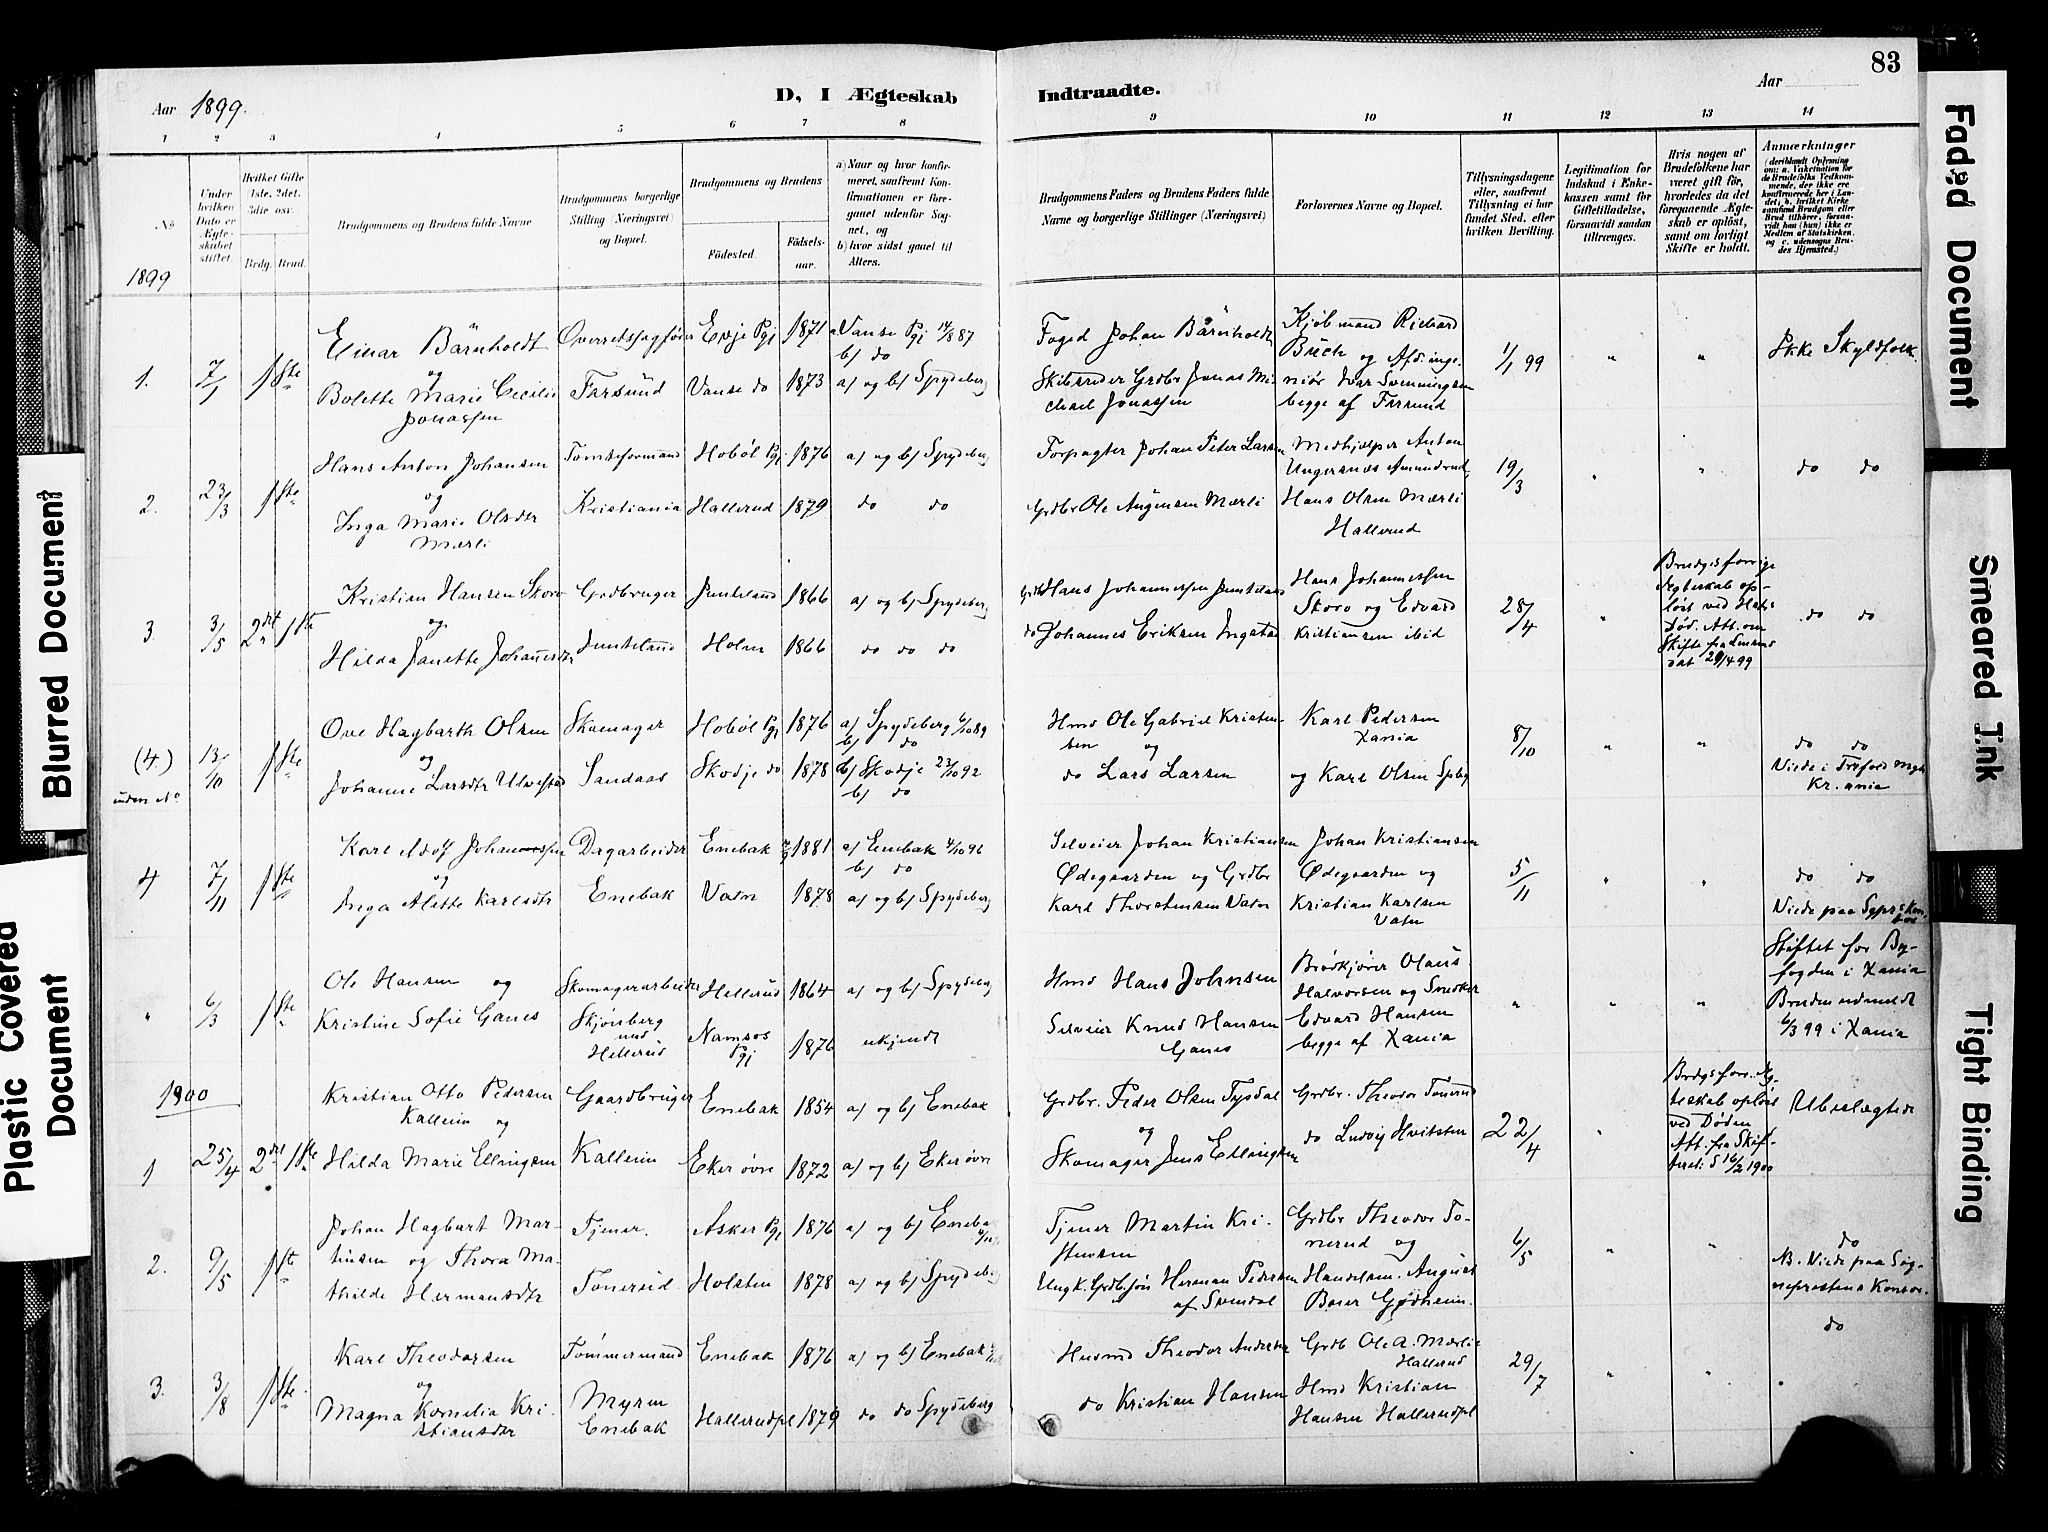 83
Aar 1899.
D, I Ægteskab Indtraadte.
Aar
1 2 3 4 5 6 7 8 9 10 11 12 13 14
No
Under hvilken Dato er Ægteskabet stiftet.
Hvilket Gifte (1ste, 2det, 3die osv.)
Brdg. Brud.
Brudgommens og Brudens fulde Navne
Brudgommens borgerlige Stilling (Næringsvei) og Bopæl.
Brudgommens og Brudens
Fødested.
Fødsels-aar.
a) Naar og hvor konfirmeret, saafremt Konfirmationen er foregaaet udenfor Sognet, og
b) hvor sidst gaaet til Alters.
Brudgommens Faders og Brudens Faders fulde Navne og borgerlige Stillinger (Næringsvei)
Forlovernes Navne og Bopæl.
Tillysningsdagene eller, saafremt Tillysning ei har fundet Sted, efter hvilken Bevilling.
Legitimation for Indskud i Enkekassen samt for Giftetilladelse, forsaavidt saadan tiltrænges.
Hvis nogen af Brudefolkene har været gift før, hvorledes da det foregaaende Ægteskab er opløst, samt om lovligt Skifte er holdt.
Anmærkninger
1899
1. 7/1 1 1ste
Einar Bärnholdt
og
Bolette Marie Cecilie
Jonassen
Overretssagfører
Farsund
Evje Pgj 1871
Vanse do 1873
a) Vanse Pgj 14/8 87
b) do
a) og b) Spydeberg
Foged Johan Bärnholdt
Skibsreder Grdbr Jonas Michael Jonassen
Kjøbmand Richard
Buch og Afd. inge-
niør Ivar Svenningsen
begge af Farsund
1/1 99
" "
Ikke Skyldfolk
2. 23/3 1 1ste
Hans Anton Johansen
og
Inga Marie Olsdtr
Mærli
Tomteformand
Kristiania
Hobøl Pgj 1876
Hallerud 1879
a) og b) Spydeberg
do do
Forpagter Johan Peter Larsen
Grdbr Ole Augensen Mærli
Medhjælper Anton
Ungersnæs Amundrud,
Hans Olsen Mærli
Hallerud
19/3
" "
do do
3. 3/5 2det 1ste
Kristian Hansen Skoro
og
Hilda Janette Johannesdtr
Grdbruger
Junteland
Holm
1866
1866
a) og b) Spydeberg
do do do
Grdbr Hans Johannessen
do Johannes Eriksen Ingstad
Hans Johannessen
Skoro og Edvard
Kristiansen ibid
28/4
"
Brudgs forrige
Ægteskab op-
løst ved Hustrus
Død. Att. om
Skifte fra Lensmd
dat 29/4 99
do do
(4.) 13/10 1 1ste
uden No
Ove Hagbarth Olsen
og
Johanne Larsdtr Ulvestad
Skomager
Sandaas
Hobøl Pgj 1876
Skodje do 1878
a) Spydeberg 6/10 89
b) do
b) Skodje 23/10 92
b) do
Hmd Ole Gabriel Kristen-
sen og
do Lars Larsen
Karl Pedersen
Xania
og Karl Olsen Spbg
8/10
" "
do do
Viede i Trefold.
Kr.ania
4 7/11 1 1ste
Karl Adolf Johannessen
og
Inga Alette Karlsdtr
Dagarbeider
Enebak
Enebak 1881
Vatn 1878
a) Enebak 4/10 96
b) do
a) og b) Spydeberg
Selveier Johan Kristiansen
Ødegaarden og Grdbr
Karl Thorstensen Vatn
Johan Kristiansen
Ødegaarden og
Kristian Karlsen
Vatn
5/11
" "
do do
Viede paa Sgprs Kon-
tor
" 6/3 1 1ste
Ole Hansen og
Kristine Sofie Ganes
Skomagerarbeider
Skjønberg
Hellerud
Hellerud 1864
Namsos Pgj 1876
a) og b) Spydeberg
ukjendt
Hmd Hans Johnsen
Selveier Knud Hansen
Ganes
Brødkjører Olaus
Halvorsen og Snedker
Edvard Hansen
begge af Xania
" " "
Stiftet for By-
fogden i Xania
Bruden udmeldt
6/3 99 i Xania
1900
1 25/4 2det 1ste
Kristian Otto Pedersen
Kallerin og
Hilda Marie Ellingsen
Gaardbruger
Kallerin
Enebak 1854
Eker øvre 1872
a) og b) Enebak
a) og b) Eker øvre
Grdbr. Peder Olsen Tysdal
og
Skomager Jens Ellingsen
Grdbr. Theodor Tonerud
do Ludvig Hvitsten
22/4
"
Brdgs forr. Æg-
teskab opløst
ved Døden
Att. fra Skif-
teret d 16/2 1900
Ubeslægtede
2. 9/5 1 1ste
Johan Hagbart Mar-
tinsen og Thora Ma-
thilde Hermansdtr
Tjener.
Tonerud
Asker Pgj 1876
Holsten 1878
a) og b) Enebak
a) og b) Spydeberg
Tjener Martin Kri-
stensen
Ungk. Grdbrsøn Herman Pedersen
af Svendal
Grdbr Theodor To-
nerud og
Handelsm. August
Boier Gjødheim.
6/5
" "
do
NB. Viede paa Sog-
neprestens Kontor.
3. 3/8 1 1ste
Karl Theodorsen
og
Magna Kornelia Kri-
stiansdtr
Tømmermand
Myren
Enebak
Enebak 1876
Hallerudpl 1879
a) og b) Enebak
do do Spydeberg
Husmd Theodor Andersen
do Kristian Hansen
Grdb Ole A. Mærli
Hallerud
Hmd Kristian
Hansen Hallerudpl
29/7
" "
do
Blurred Document
Plastic Covered Document
Faded Document
Smeared Ink
Tight Binding